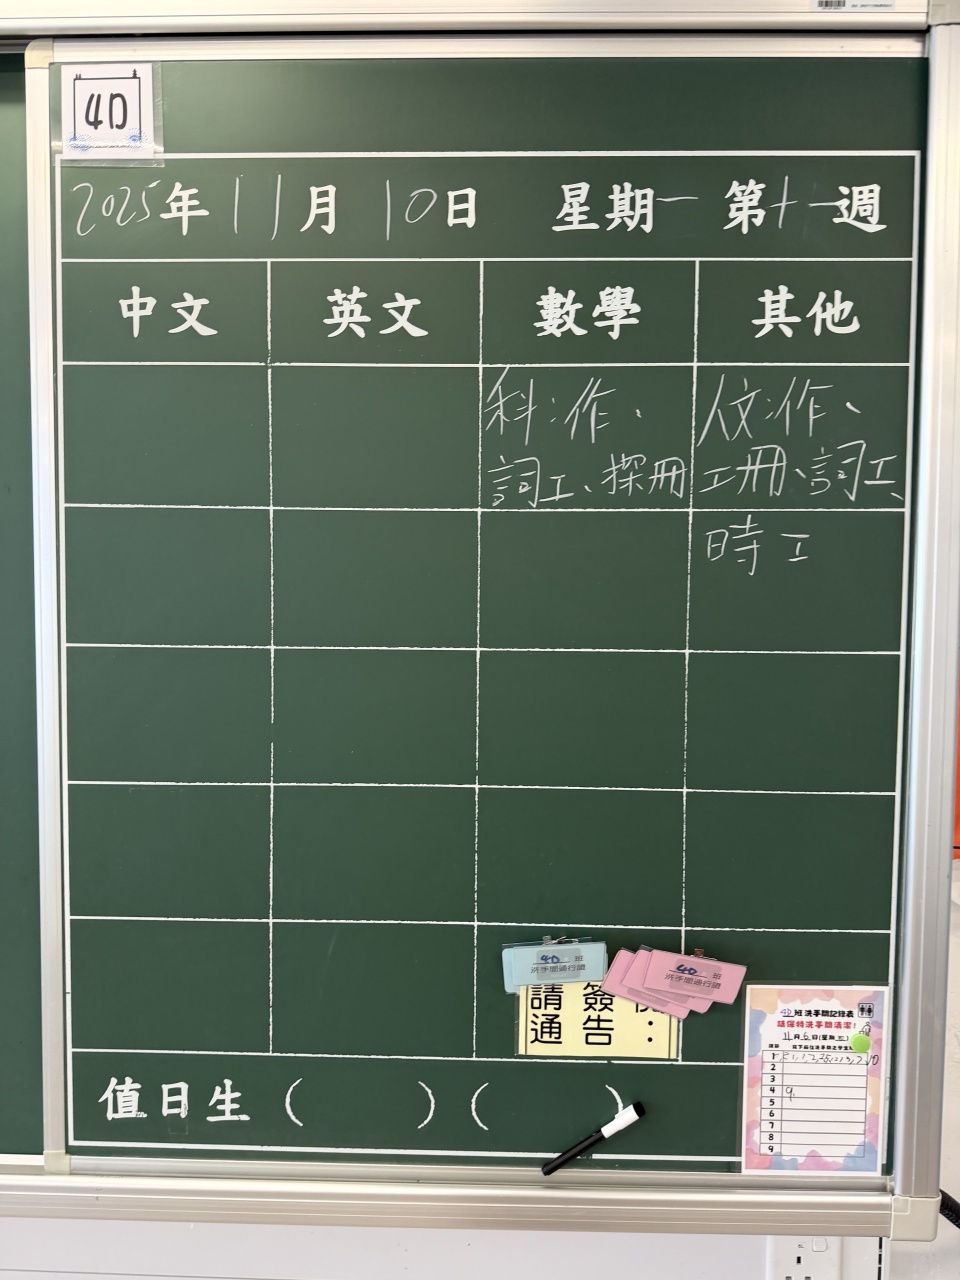 4D
2025年11月10日 星期一 第十一週
中文 英文 數學 其他
科:作、
詞工、探冊
人文:作、
工冊、詞工、
時工
4D 班
洗手間通行證
4D 班
洗手間通行證
請簽
通告:
4D班洗手間記錄表
請保持洗手間清潔!
11月6日(星期五)
1
2
3
4 9,
5
6
7
8
9
值日生 ( ) ( )